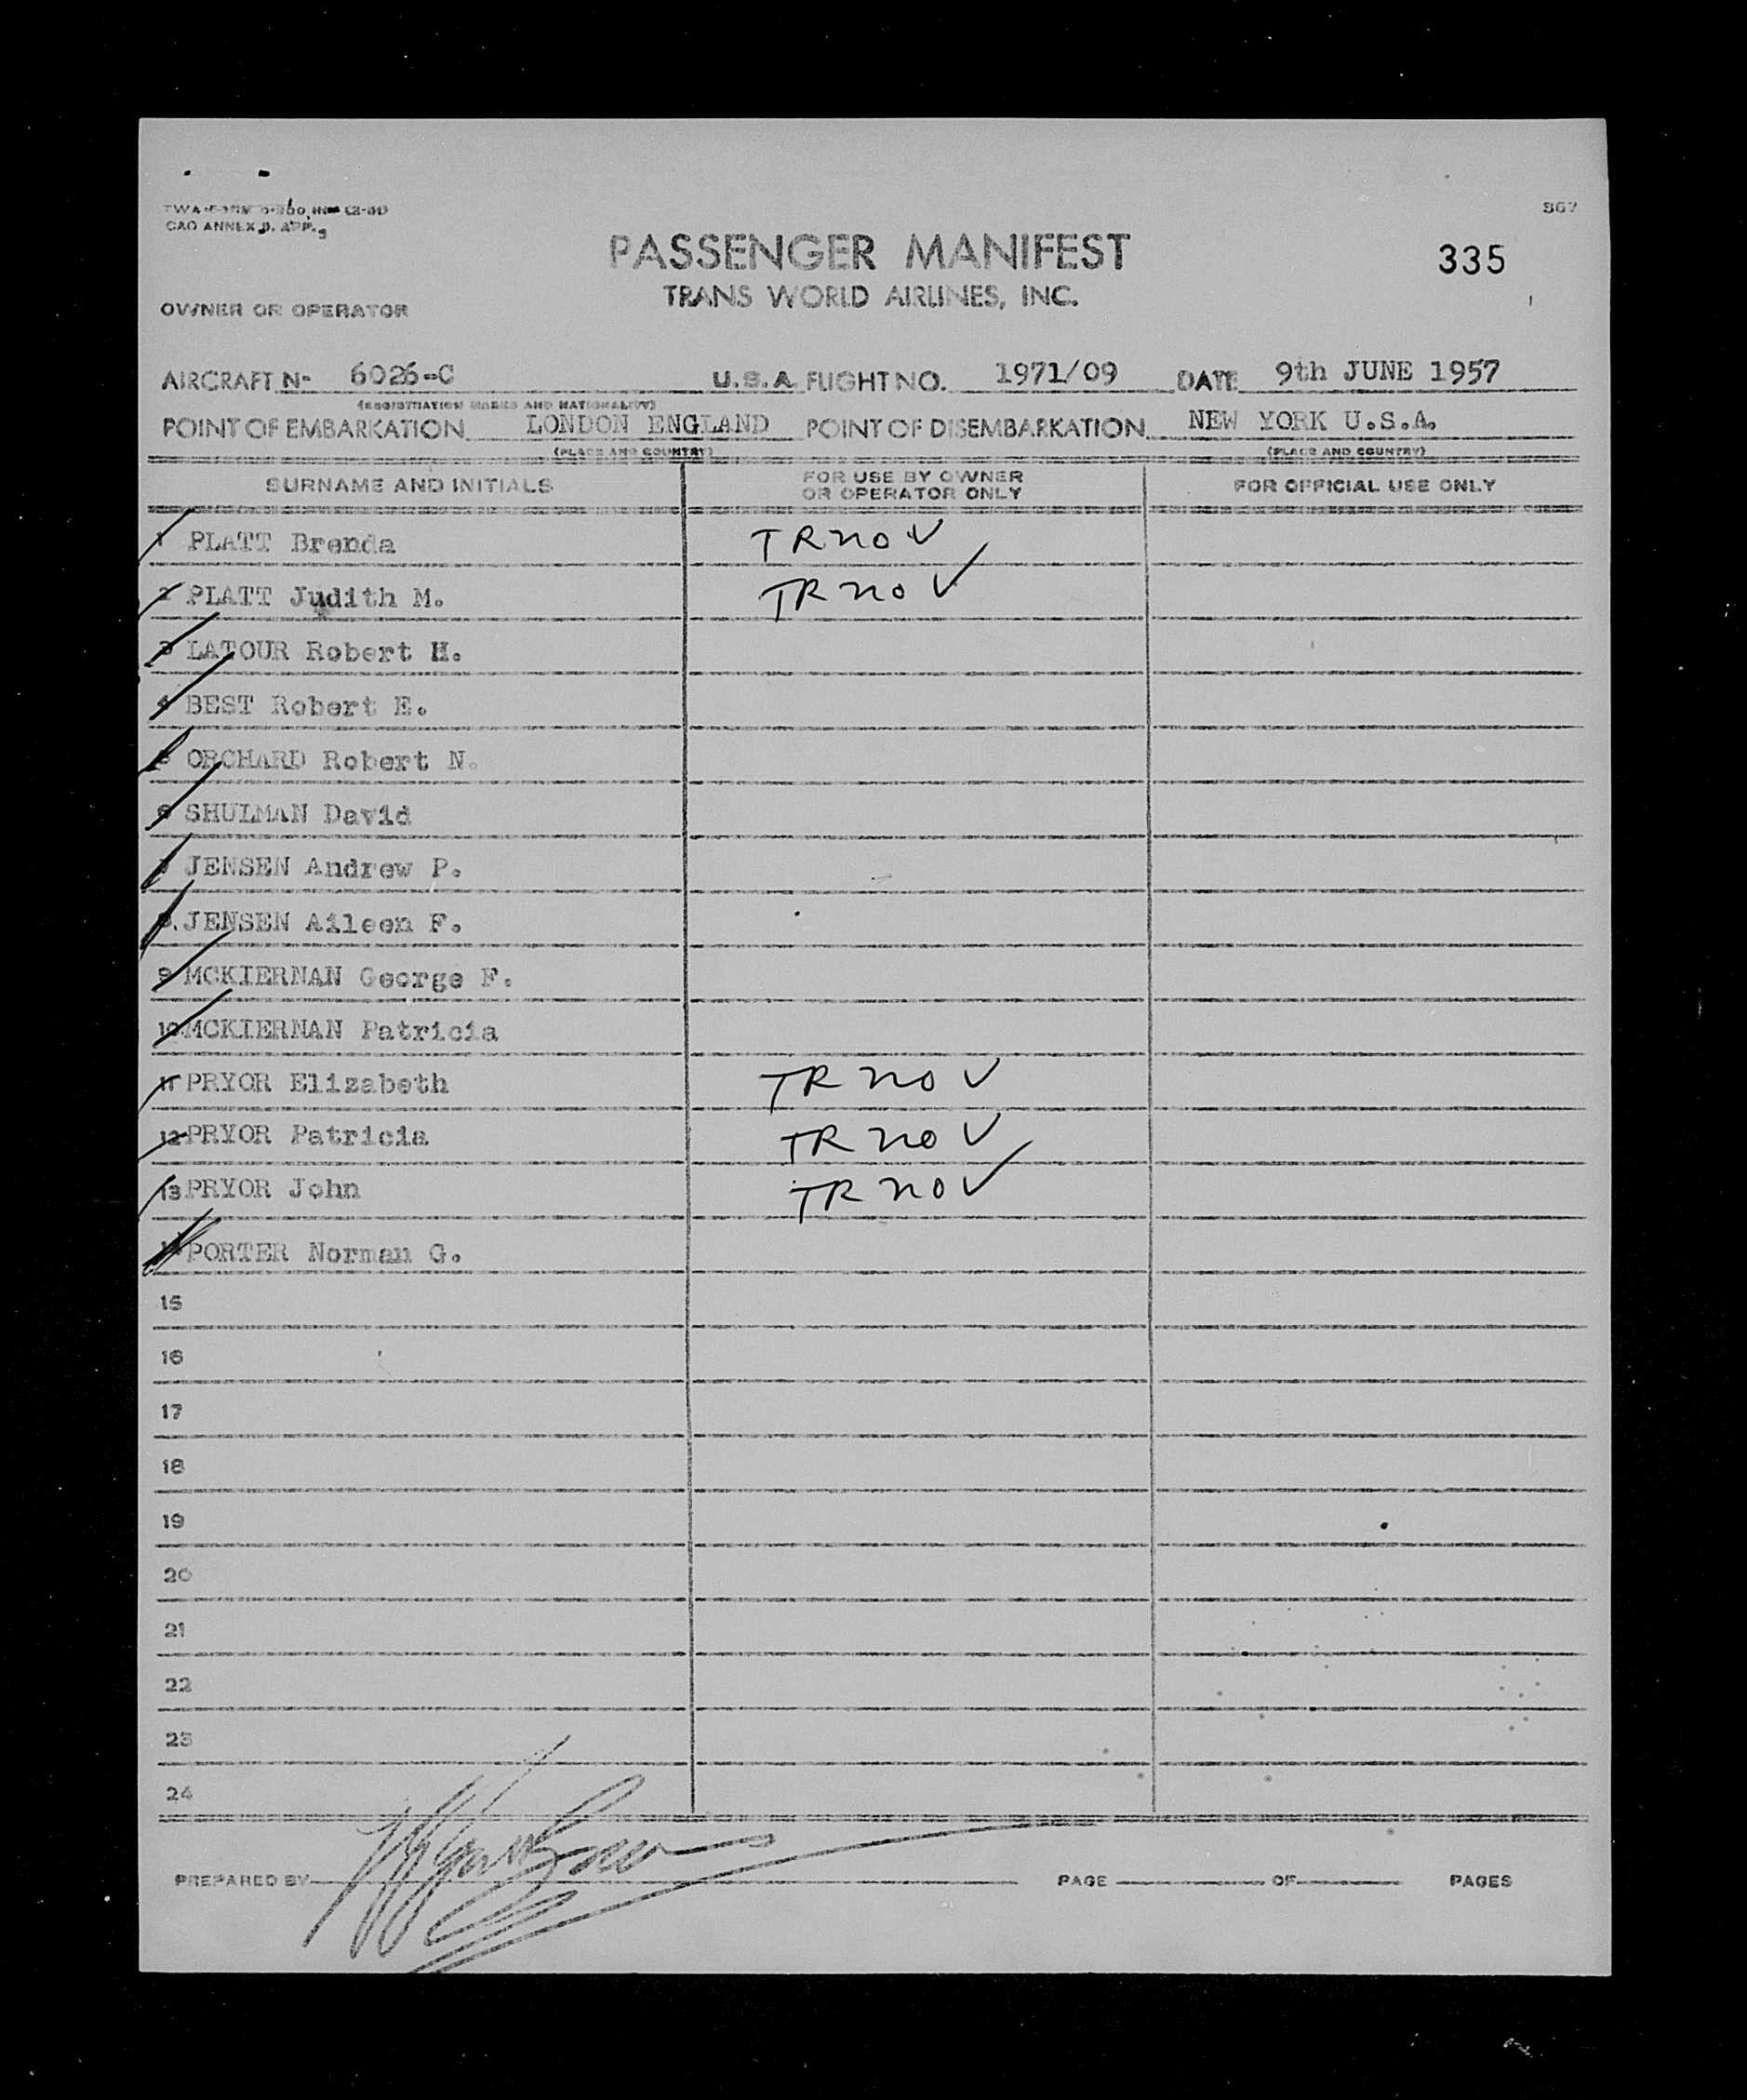 367
CAO ANNEX 9. APP. 3
PASSENGER MANIFEST
335
TRANS WORLD AIRLINES, INC.
OWNER OR OPERATOR
AIRCRAFT No 6026-C U.S.A. FLIGHT NO. 1971/09 DATE 9th JUNE 1957
(REGISTRATION MARKS AND NATIONALITY)
POINT OF EMBARKATION LONDON ENGLAND POINT OF DISEMBARKATION NEW YORK U.S.A.
(PLACE AND COUNTRY) (PLACE AND COUNTRY)
SURNAME AND INITIALS FOR USE BY OWNER OR OPERATOR ONLY FOR OFFICIAL USE ONLY
1 PLATT Brenda TR no V
2 PLATT Judith M. TR no V
3 LATOUR Robert H.
4 BEST Robert E.
5 ORCHARD Robert N.
6 SHULMAN David
7 JENSEN Andrew P.
8. JENSEN Aileen F.
9 MCKIERNAN George F.
10 MCKIERNAN Patricia
11 PRYOR Elizabeth TR no V
12 PRYOR Patricia TR no V
13 PRYOR John TR no V
14 PORTER Norman G.
15
16
17
18
19
20
21
22
23
24
PREPARED BY PAGE OF PAGES